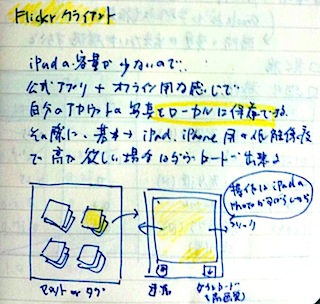 Flickr クライアント
iPadの容量が少ないので、
公式アプリ + オフライン用な感じで
自分のアカウントの写真をローカルに保存できる
その際に、基本 → iPad, iPhone 用の低解像度
で高が欲しい場合はダウンロード出来る
操作は iPadの
Photo
フリック
セット or タグ
ダウンロード
(高画質)